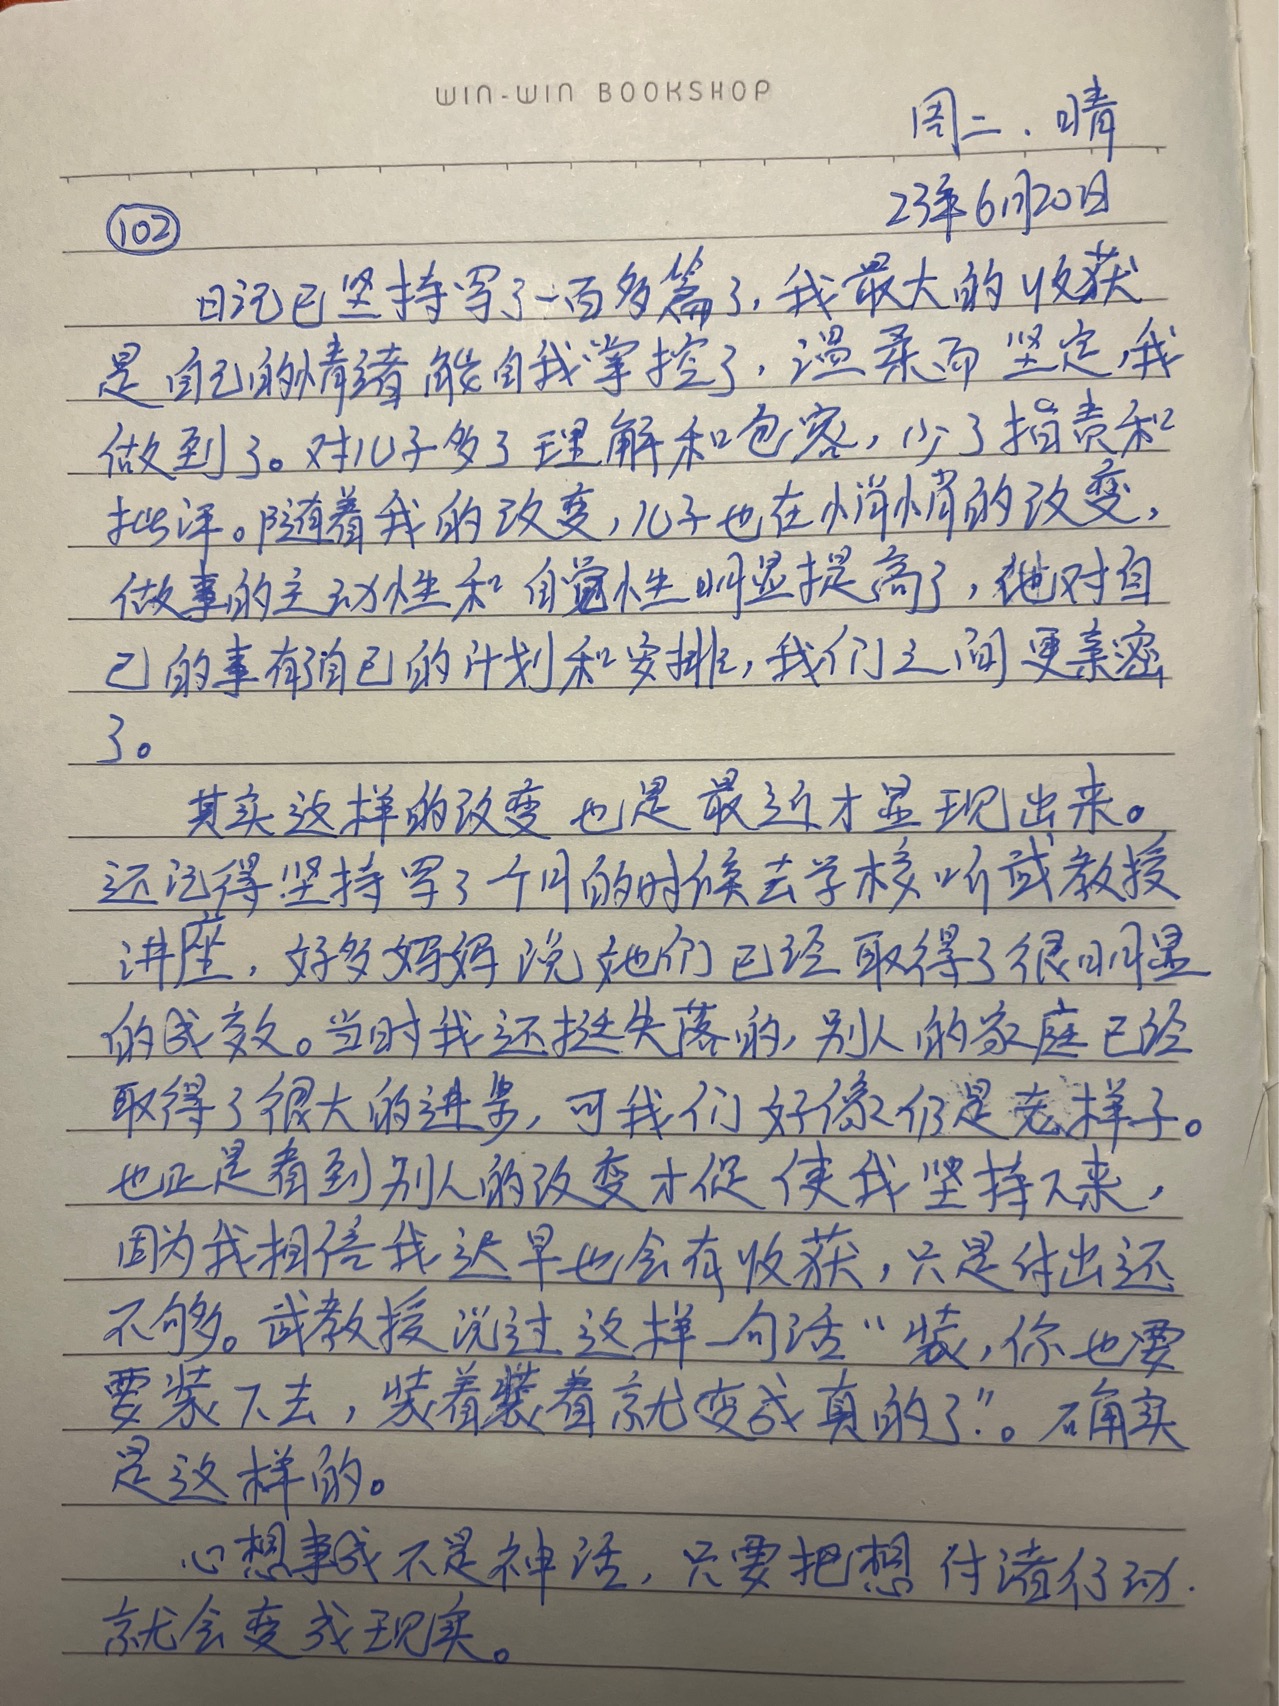 WIN-WIN BOOKSHOP
周二.晴
23年6月20日
102
日记已坚持写了一百多篇了,我最大的收获
是自己的情绪能自我掌控了,温柔而坚定,我
做到了。对儿子多了理解和包容,少了指责和
批评。随着我的改变,儿子也在悄悄的改变,
做事的主动性和自觉性明显提高了,他对自
己的事有了自己的计划和安排,我们之间更亲密
了。
其实这样的改变也是最近才显现出来。
还记得坚持写了个月的时候去学校听武教授
讲座,好多妈妈说她们已经取得了很明显
的成效。当时我还挺失落的,别人的家庭已经
取得了很大的进步,可我们好像仍是老样子。
也正是看到别人的改变才促使我坚持下来,
因为我相信我迟早也会有收获,只是付出还
不够。武教授说过这样一句话“装,你也要
要装下去,装着装着就变成真的了”。确实
是这样的。
心想事成不是神话,只要把想付诸行动.
就会变成现实。